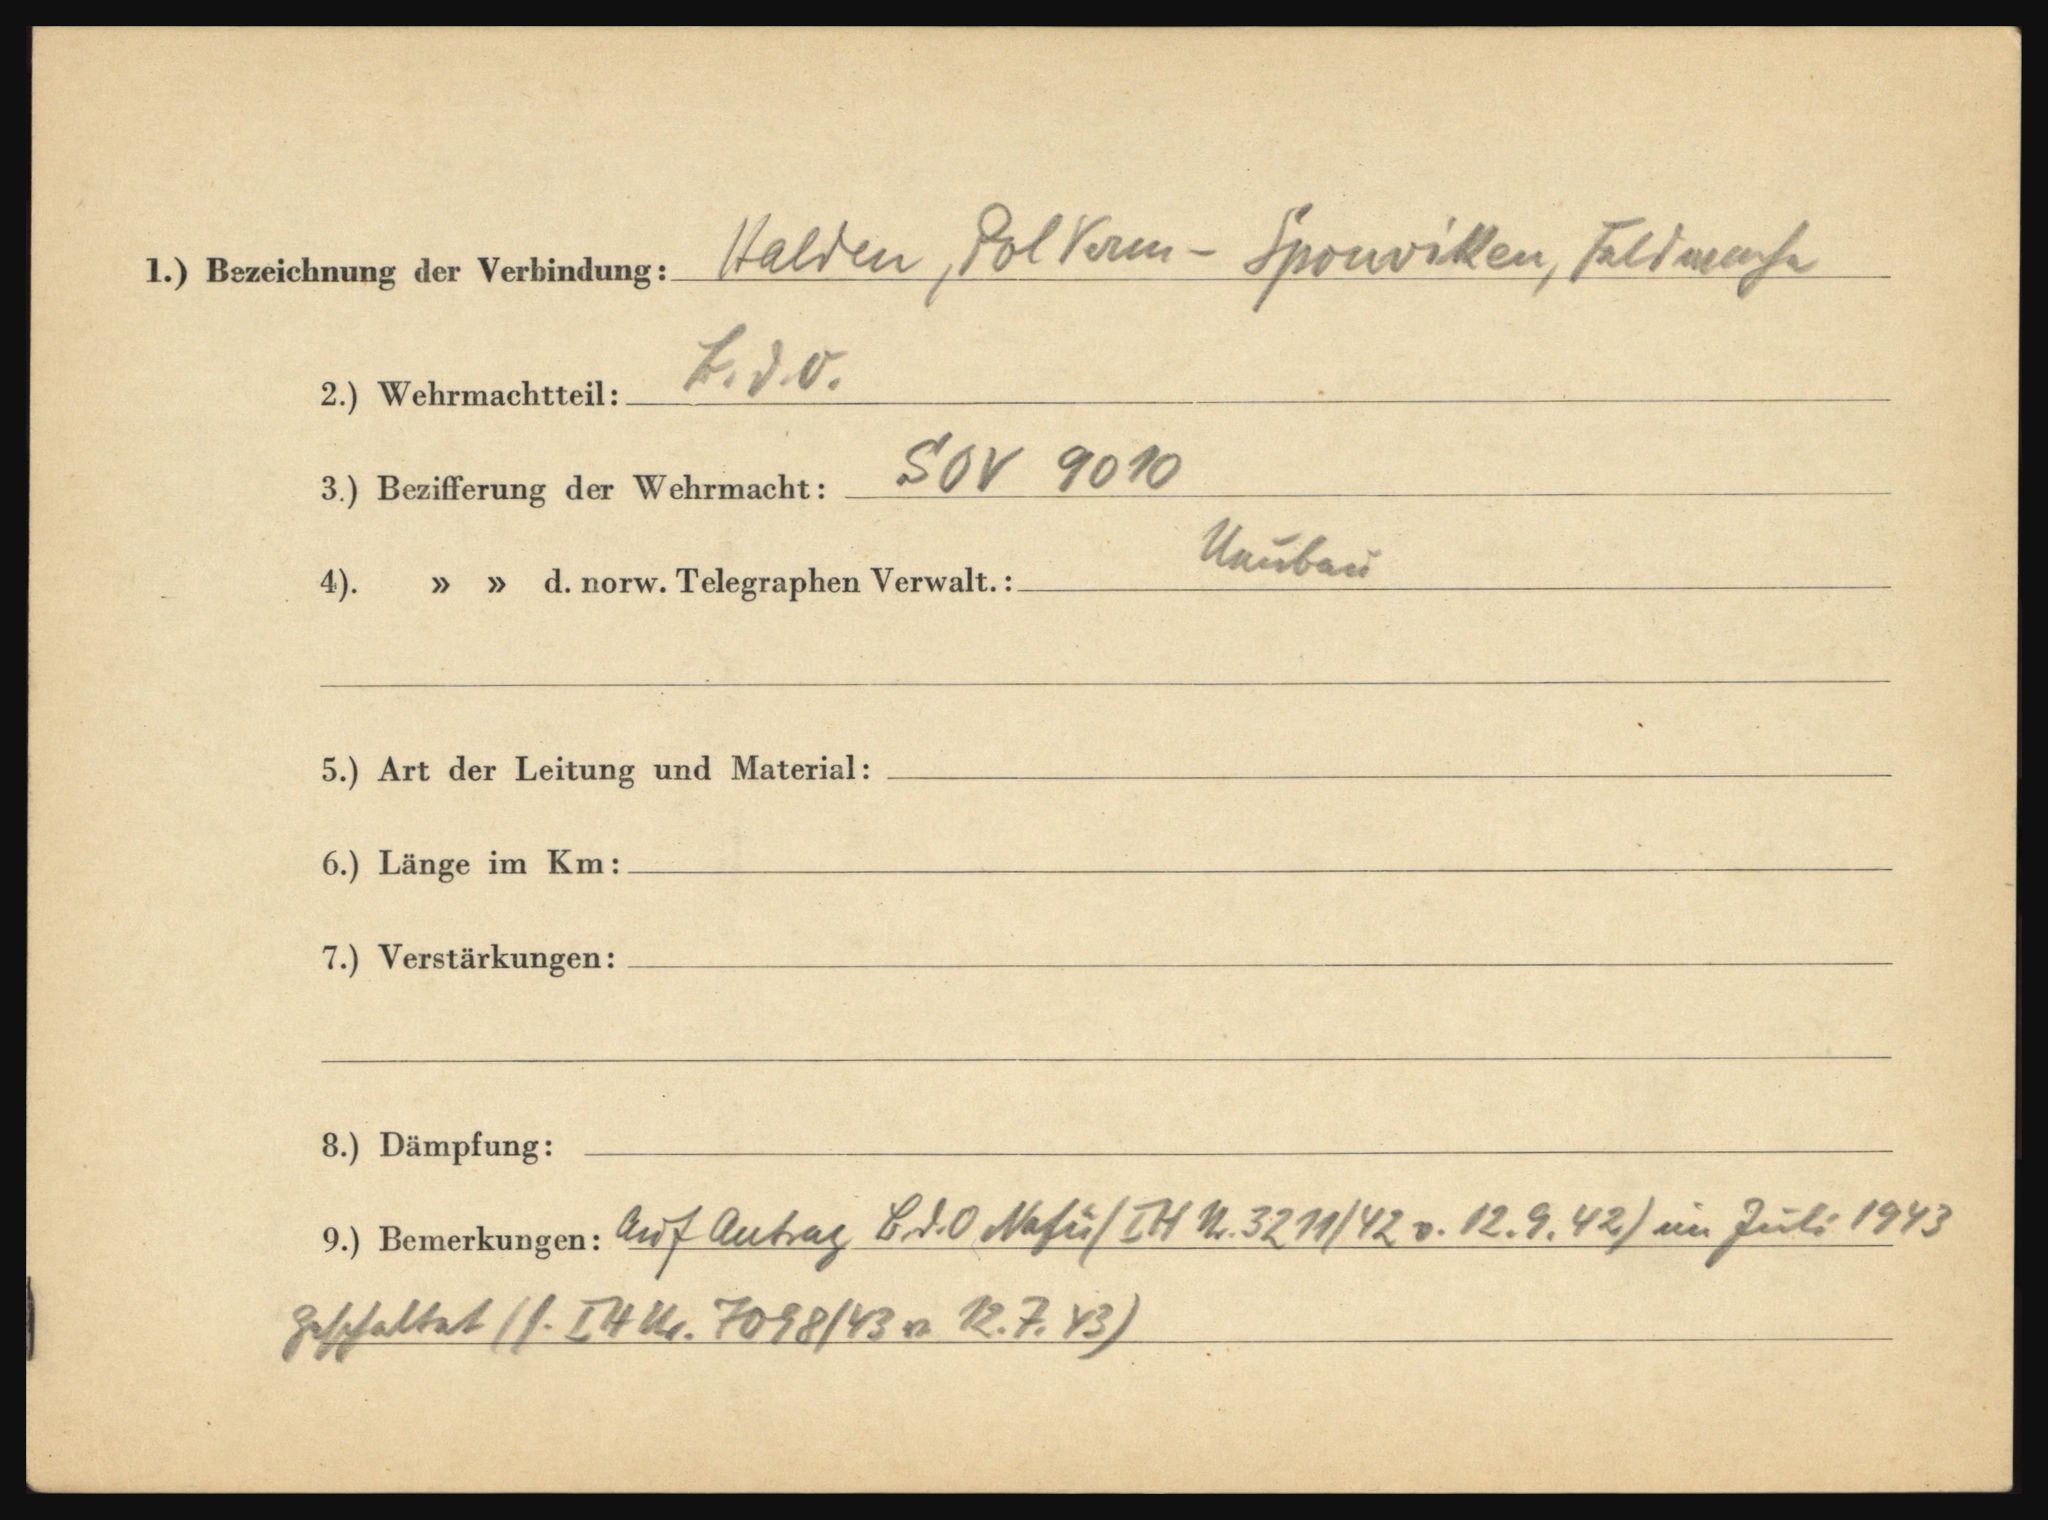 1.) Bezeichnung der Verbindung: Halden, Pol Verm - Sponvikken, Feldwache
2.) Wehrmachtteil: B.d.O.
3.) Bezifferung der Wehrmacht: SOV 9010
4). » » d. norw. Telegraphen Verwalt.: Neubau
5.) Art der Leitung und Material:
6.) Länge im Km:
7.) Verstärkungen:
8.) Dämpfung:
9.) Bemerkungen: Auf Antrag B.d.O Nafü (IH Nr. 3211/42 v. 12.9.42) im Juli 1943
geschaltet (s. IH Nr. 7098/43 v. 12.7.43)